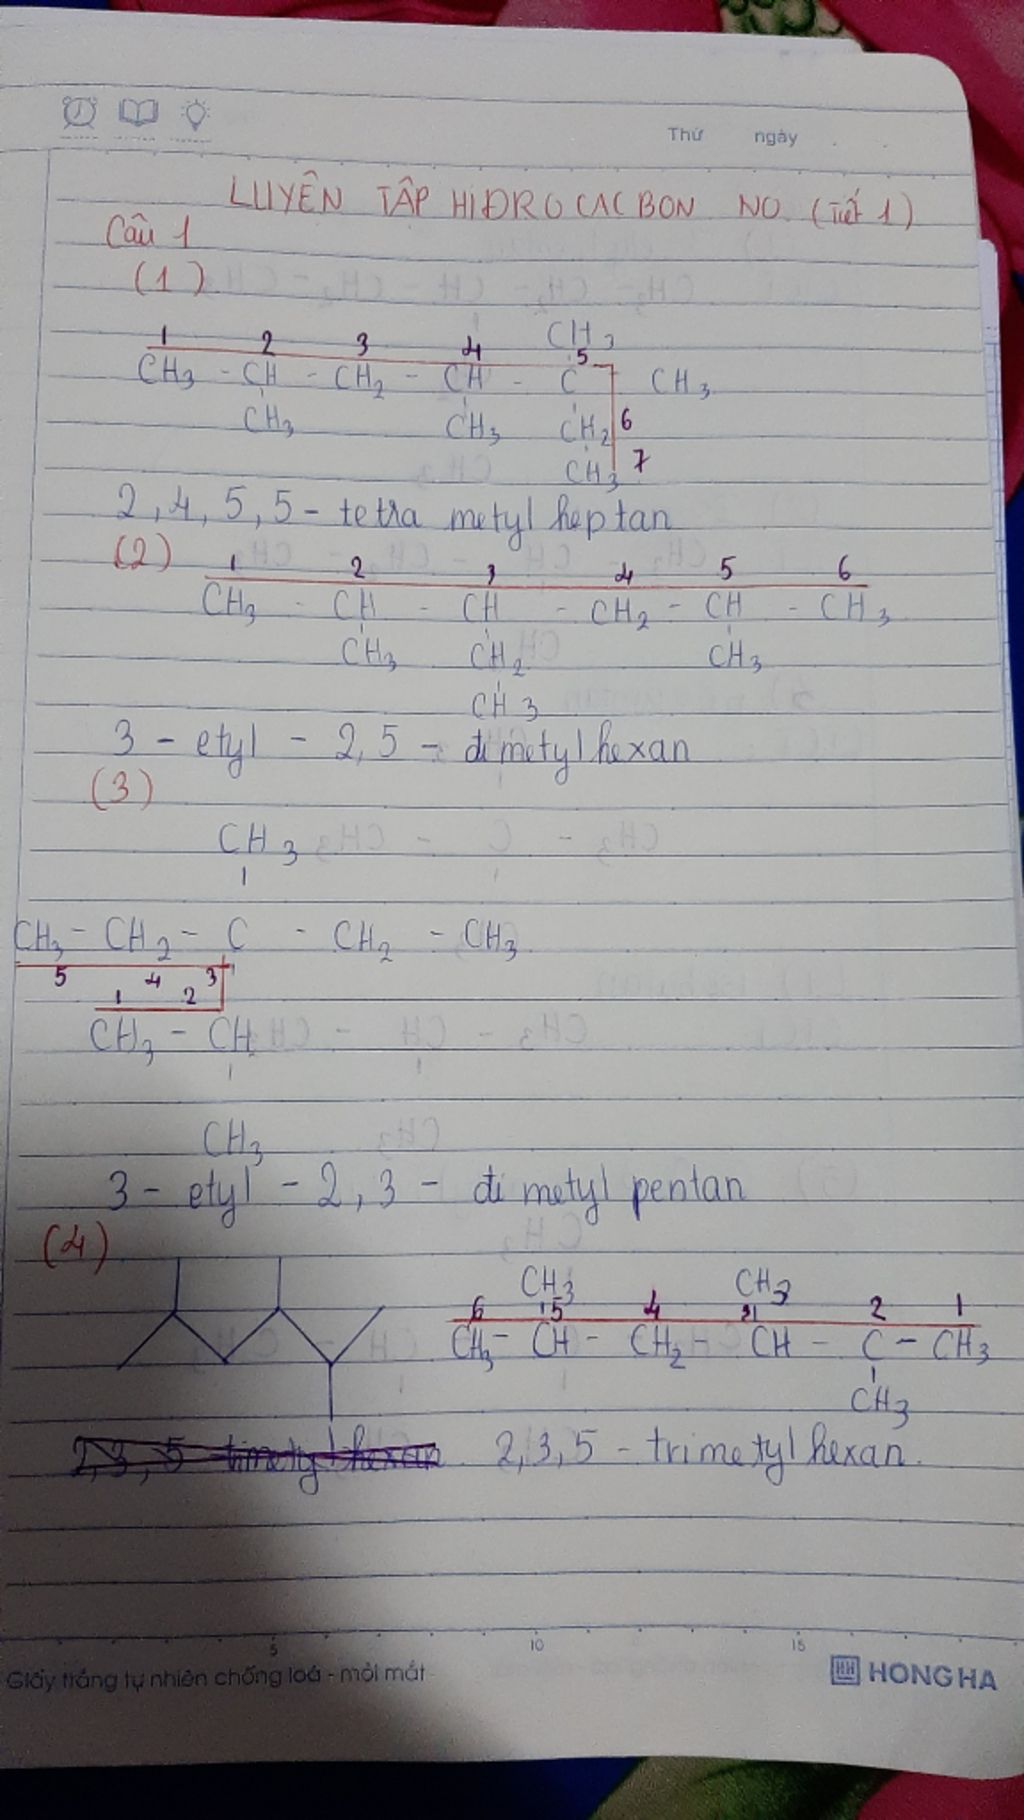 Thứ ngày
LUYỆN TẬP HIĐRO CACBON NO (Tiết 1)
Câu 1
(1)
CH3
1 2 3 4 5
CH3 - CH - CH2 - CH - C CH3
CH3 CH3 CH2 6
CH3 7
2,4,5,5 - tetra metyl heptan
(2)
1 2 3 4 5 6
CH3 - CH - CH - CH2 - CH - CH3
CH3 CH2 CH3
CH3
3 - etyl - 2,5 - đi metyl hexan
(3)
CH3
CH3 - CH2 - C - CH2 - CH3
5 4 3
1 2
CH3 - CH
CH3
3 - etyl - 2,3 - đi metyl pentan
(4)
CH3 CH3
6 5 4 3 2 1
CH3 - CH - CH2 - CH - C - CH3
CH3
2,3,5 - trimetyl hexan 2,3,5 - trimetyl hexan
5 10 15
Giấy trắng tự nhiên chống loá - mỏi mắt
HH HONG HA